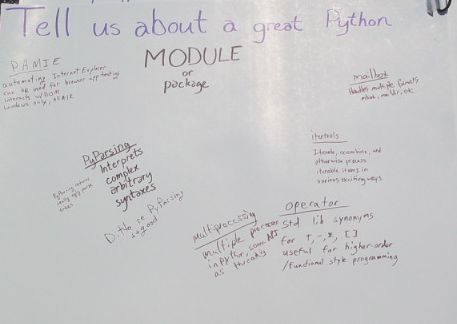 Tell us about a great Python
MODULE
or
package
PAMIE
automating Internet Explorer
can be used for browser app testing
interacts w/DOM
windows only,
mailbox
Handles multiple formats
mbox, maildir, etc
itertools
Iterate, recombine, and
otherwise process
iterable items in
various exciting ways.
PyParsing
Interprets
complex
arbitrary
syntaxes
Ditto, re PyParsing
is good
multiprocessing
multiple processes
in python,
as threading
operator
std lib synonyms
for +, -, *, []
useful for higher-order
/functional style programming